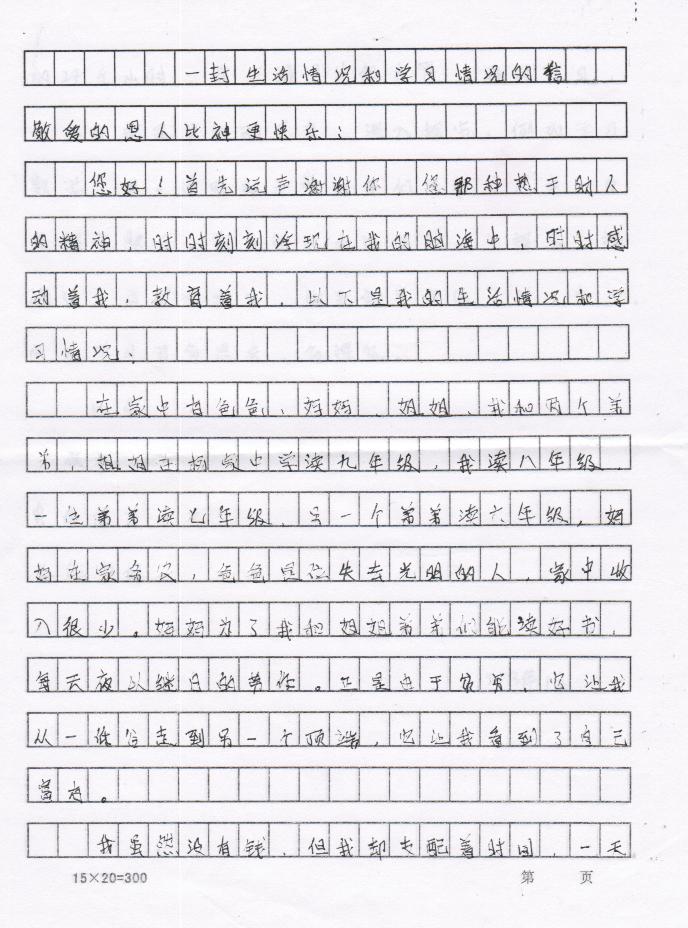 一封生活情况和学习情况的信
敬爱的恩人比神更快乐：
您好！首先说声谢谢你们您那种热于助人
的精神，时时刻刻浮现在我的脑海中，时时感
动着我，教育着我，以下是我的生活情况和学
习情况：
在家中有爸爸、妈妈、姐姐、我和两个弟
弟，姐姐在 中学读九年级，我读八年级，
一位弟弟读七年级，另一个弟弟读六年级。妈
妈在家务农，爸爸是位失去光明的人，家中收
入很少。妈妈为了我和姐姐弟弟们能读好书，
每天夜以继日的劳作。正是由于贫穷，它让我
从一 走到另一个顶端，它让我看到了自己
富有。
我虽然没有钱，但我却支配着时间，一天
15×20=300
第 页